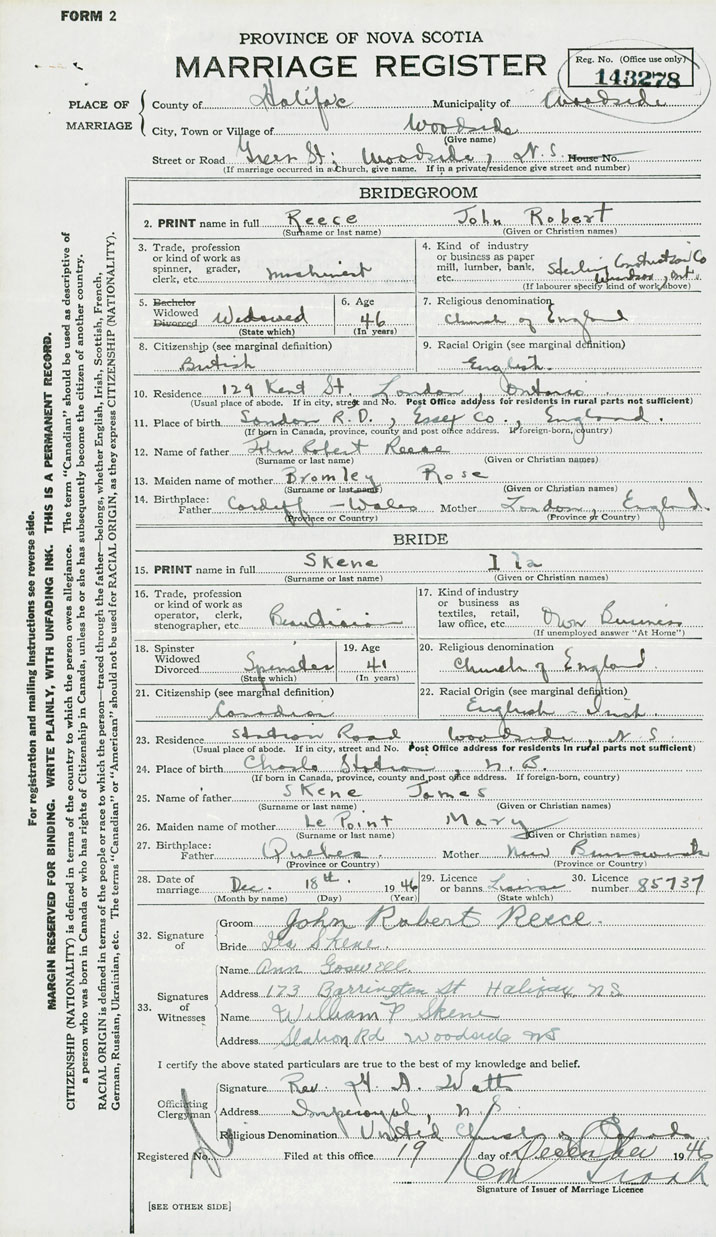 FORM 2
PROVINCE OF NOVA SCOTIA
MARRIAGE REGISTER
Reg. No. (Office use only)
143278
PLACE OF MARRIAGE
County of Halifax Municipality of Woodside
City, Town or Village of Woodside
(Give name)
Street or Road Green St; Woodside, N.S. House No.
(If marriage occurred in a Church, give name. If in a private residence give street and number)
BRIDEGROOM
2. PRINT name in full Reece John Robert
(Surname or last name) (Given or Christian names)
3. Trade, profession or kind of work as spinner, grader, clerk, etc. Machinist
4. Kind of industry or business as paper mill, lumber, bank, etc. Sterling Construction Co Windsor, Ont.
(If labourer specify kind of work above)
5. Bachelor Widowed Divorced Widowed
(State which)
6. Age 46
(In years)
7. Religious denomination
Church of England
8. Citizenship (see marginal definition)
British
9. Racial Origin (see marginal definition)
English.
10. Residence 129 Kent St. London, Ontario.
(Usual place of abode. If in city, street and No. Post Office address for residents in rural parts not sufficient)
11. Place of birth London R.D., Essex Co., England.
(If born in Canada, province, county and post office address. If foreign-born, country)
12. Name of father John Robert Reece
(Surname or last name) (Given or Christian names)
13. Maiden name of mother Bromley Rose
(Surname or last name) (Given or Christian names)
14. Birthplace: Father Cardiff - Wales Mother London, England.
(Province or Country) (Province or Country)
BRIDE
15. PRINT name in full Skene Ila
(Surname or last name) (Given or Christian names)
16. Trade, profession or kind of work as operator, clerk, stenographer, etc. Beautician
17. Kind of industry or business as textiles, retail, law office, etc. Own Business
(If unemployed answer "At Home")
18. Spinster Widowed Divorced Spinster
(State which)
19. Age 41
(In years)
20. Religious denomination
Church of England.
21. Citizenship (see marginal definition)
Canadian
22. Racial Origin (see marginal definition)
English - Irish.
23. Residence Station Road Woodside, N.S.
(Usual place of abode. If in city, street and No. Post Office address for residents in rural parts not sufficient)
24. Place of birth Charlo Station, N.B.
(If born in Canada, province, county and post office address. If foreign-born, country)
25. Name of father Skene James
(Surname or last name) (Given or Christian names)
26. Maiden name of mother Le Point Mary
(Surname or last name) (Given or Christian names)
27. Birthplace: Father Quebec. Mother New Brunswick
(Province or Country) (Province or Country)
28. Date of marriage Dec. 18th. 1946
(Month by name) (Day) (Year)
29. Licence or banns License
(State which)
30. Licence number 85737
32. Signature of
Groom John Robert Reece.
Bride Ila Skene.
33. Signatures of Witnesses
Name Ann Goswell.
Address 173 Barrington St Halifax, NS
Name William P Skene
Address Station Rd Woodside NS
I certify the above stated particulars are true to the best of my knowledge and belief.
Officiating Clergyman
Signature Rev. H. A. Watts
Address Imperoyal, N.S.
Religious Denomination United Church of Canada.
Registered No. Filed at this office 19 day of December 1946
Signature of Issuer of Marriage Licence
[SEE OTHER SIDE]
For registration and mailing instructions see reverse side.
MARGIN RESERVED FOR BINDING. WRITE PLAINLY, WITH UNFADING INK. THIS IS A PERMANENT RECORD.
CITIZENSHIP (NATIONALITY) is defined in terms of the country to which the person owes allegiance. The term "Canadian" should be used as descriptive of
a person who was born in Canada or who has rights of Citizenship in Canada, unless he or she has subsequently become the citizen of another country.
RACIAL ORIGIN is defined in terms of the people or race to which the person—traced through the father—belongs, whether English, Irish, Scottish, French,
German, Russian, Ukrainian, etc. The terms "Canadian" or "American" should not be used for RACIAL ORIGIN, as they express CITIZENSHIP (NATIONALITY).